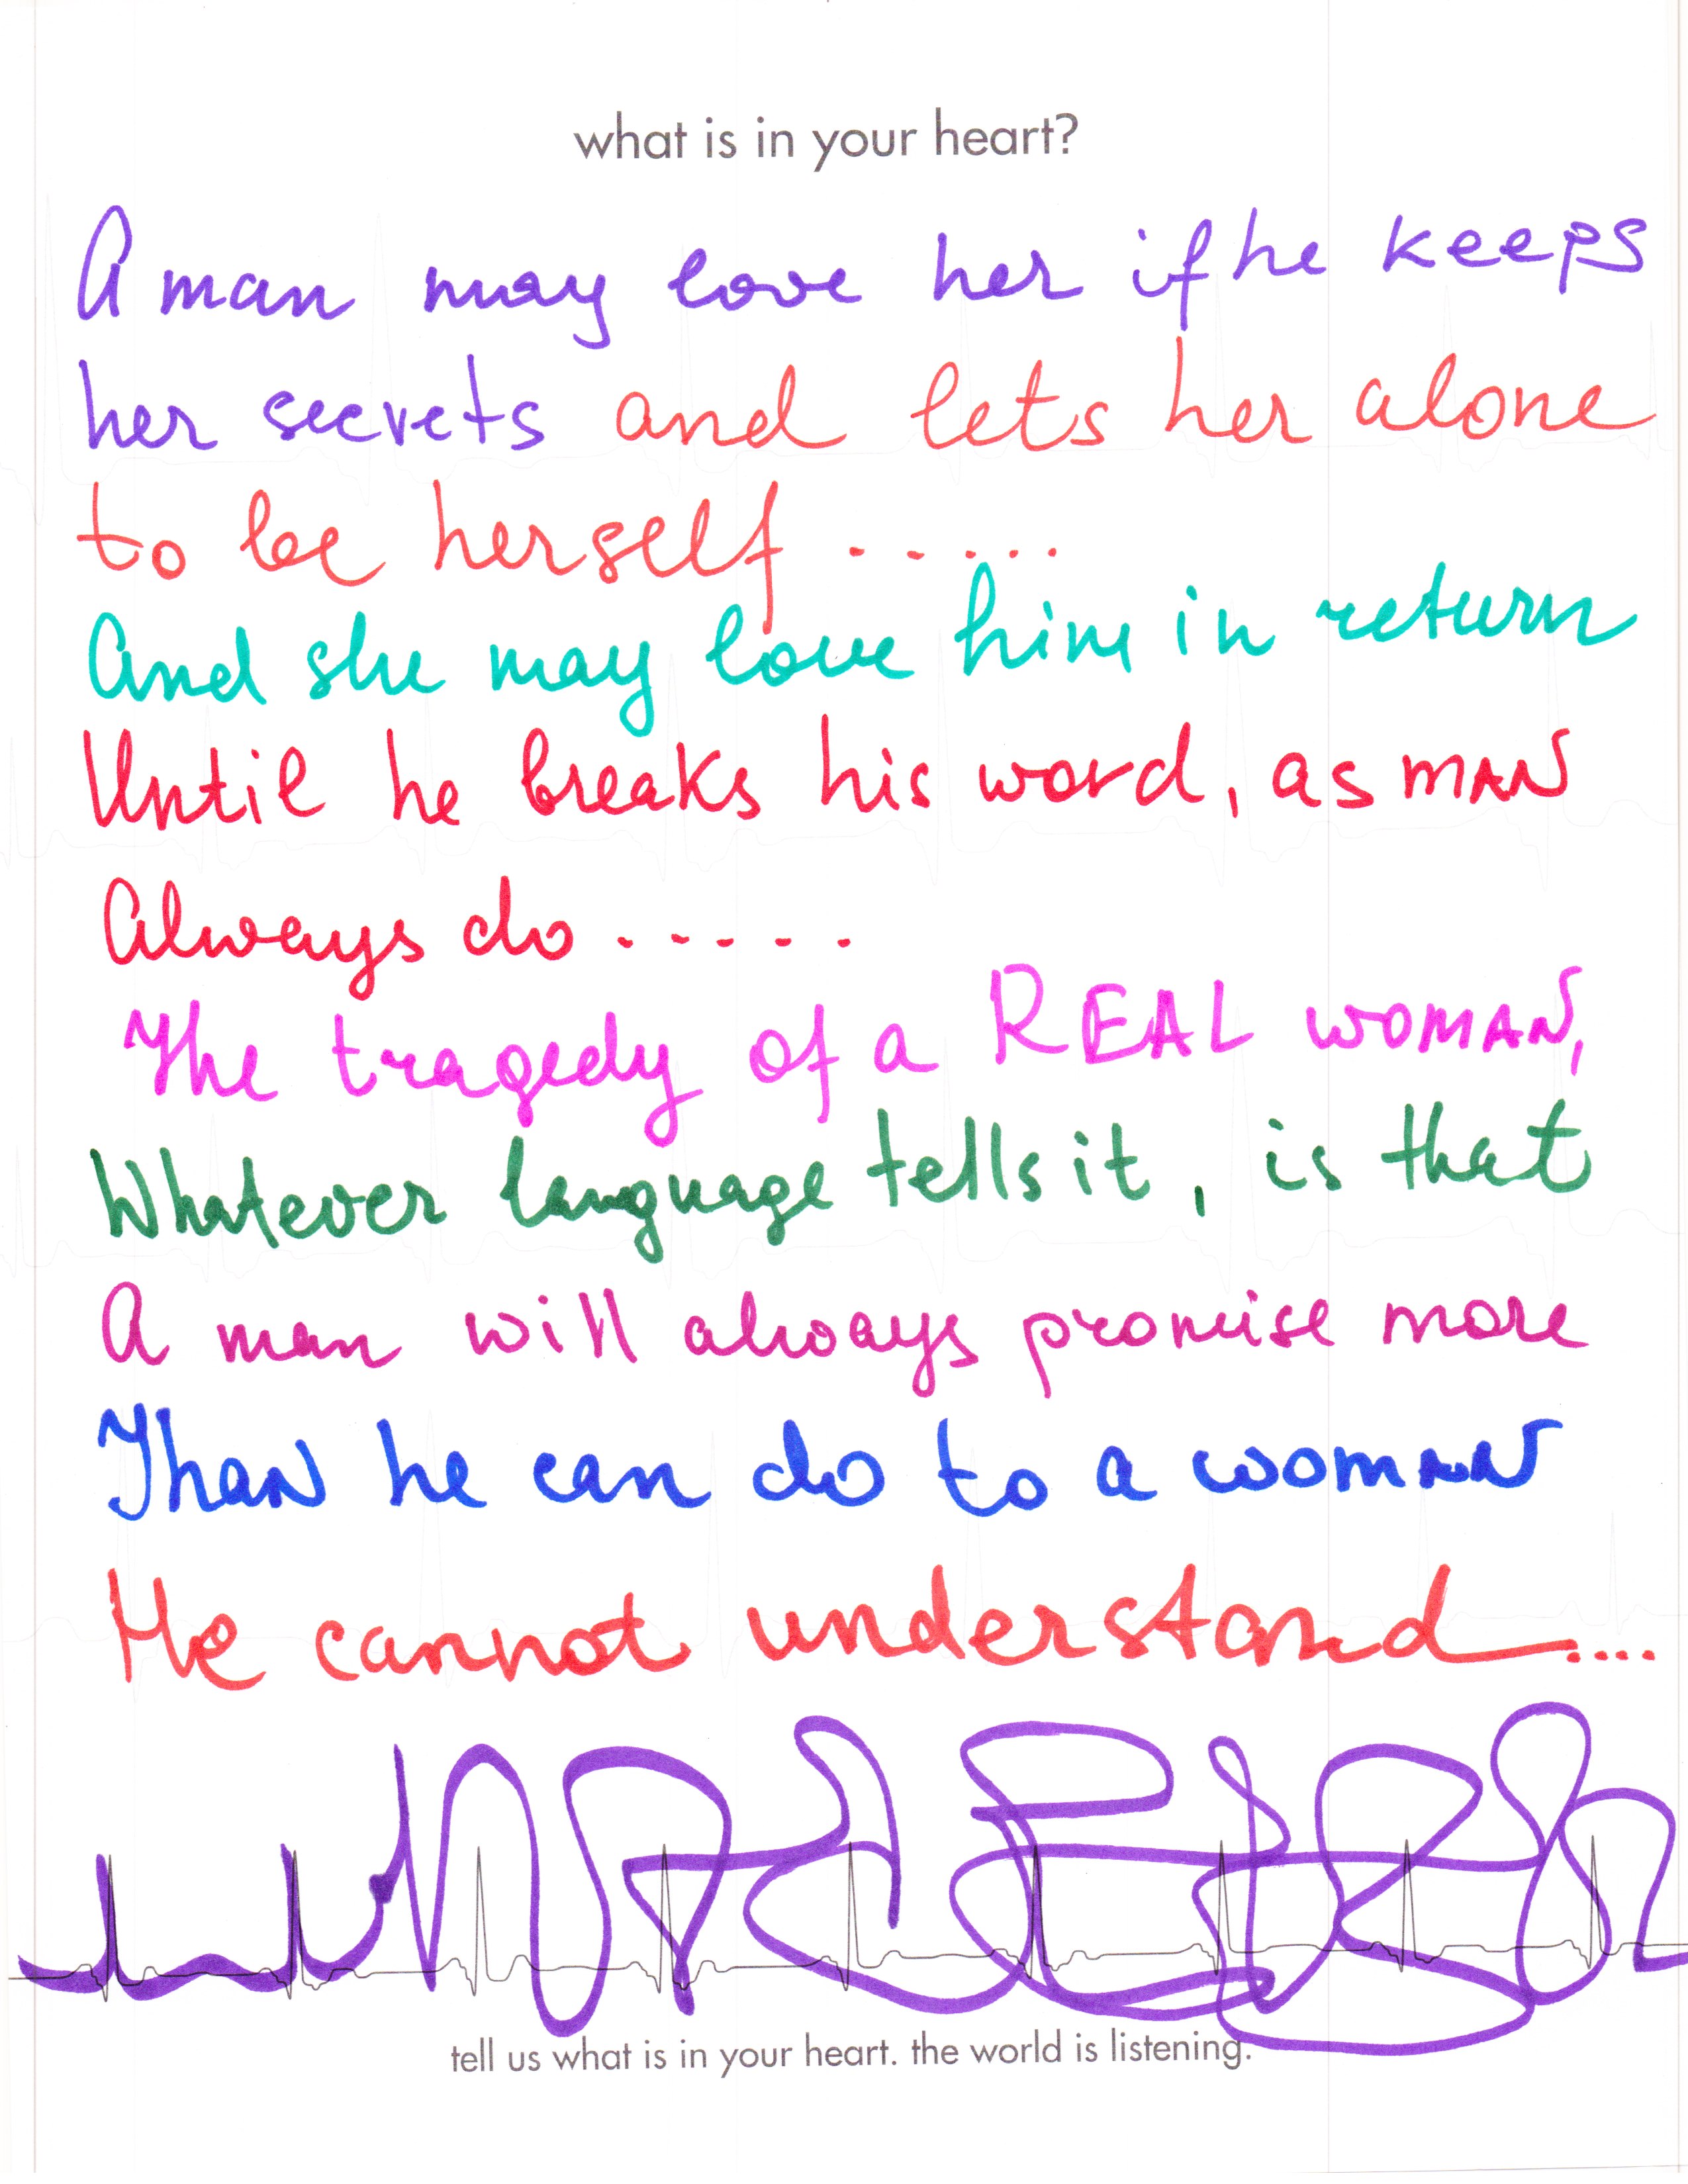 what is in your heart?
A man may love her if he keeps
her secrets and lets her alone
to be herself ......
And she may love him in return
Until he breaks his word, as MAN
Always do .....
The tragedy of a REAL WOMAN,
Whatever language tells it, is that
A man will always promise more
Than he can do to a woman
He cannot understand....
tell us what is in your heart. the world is listening.